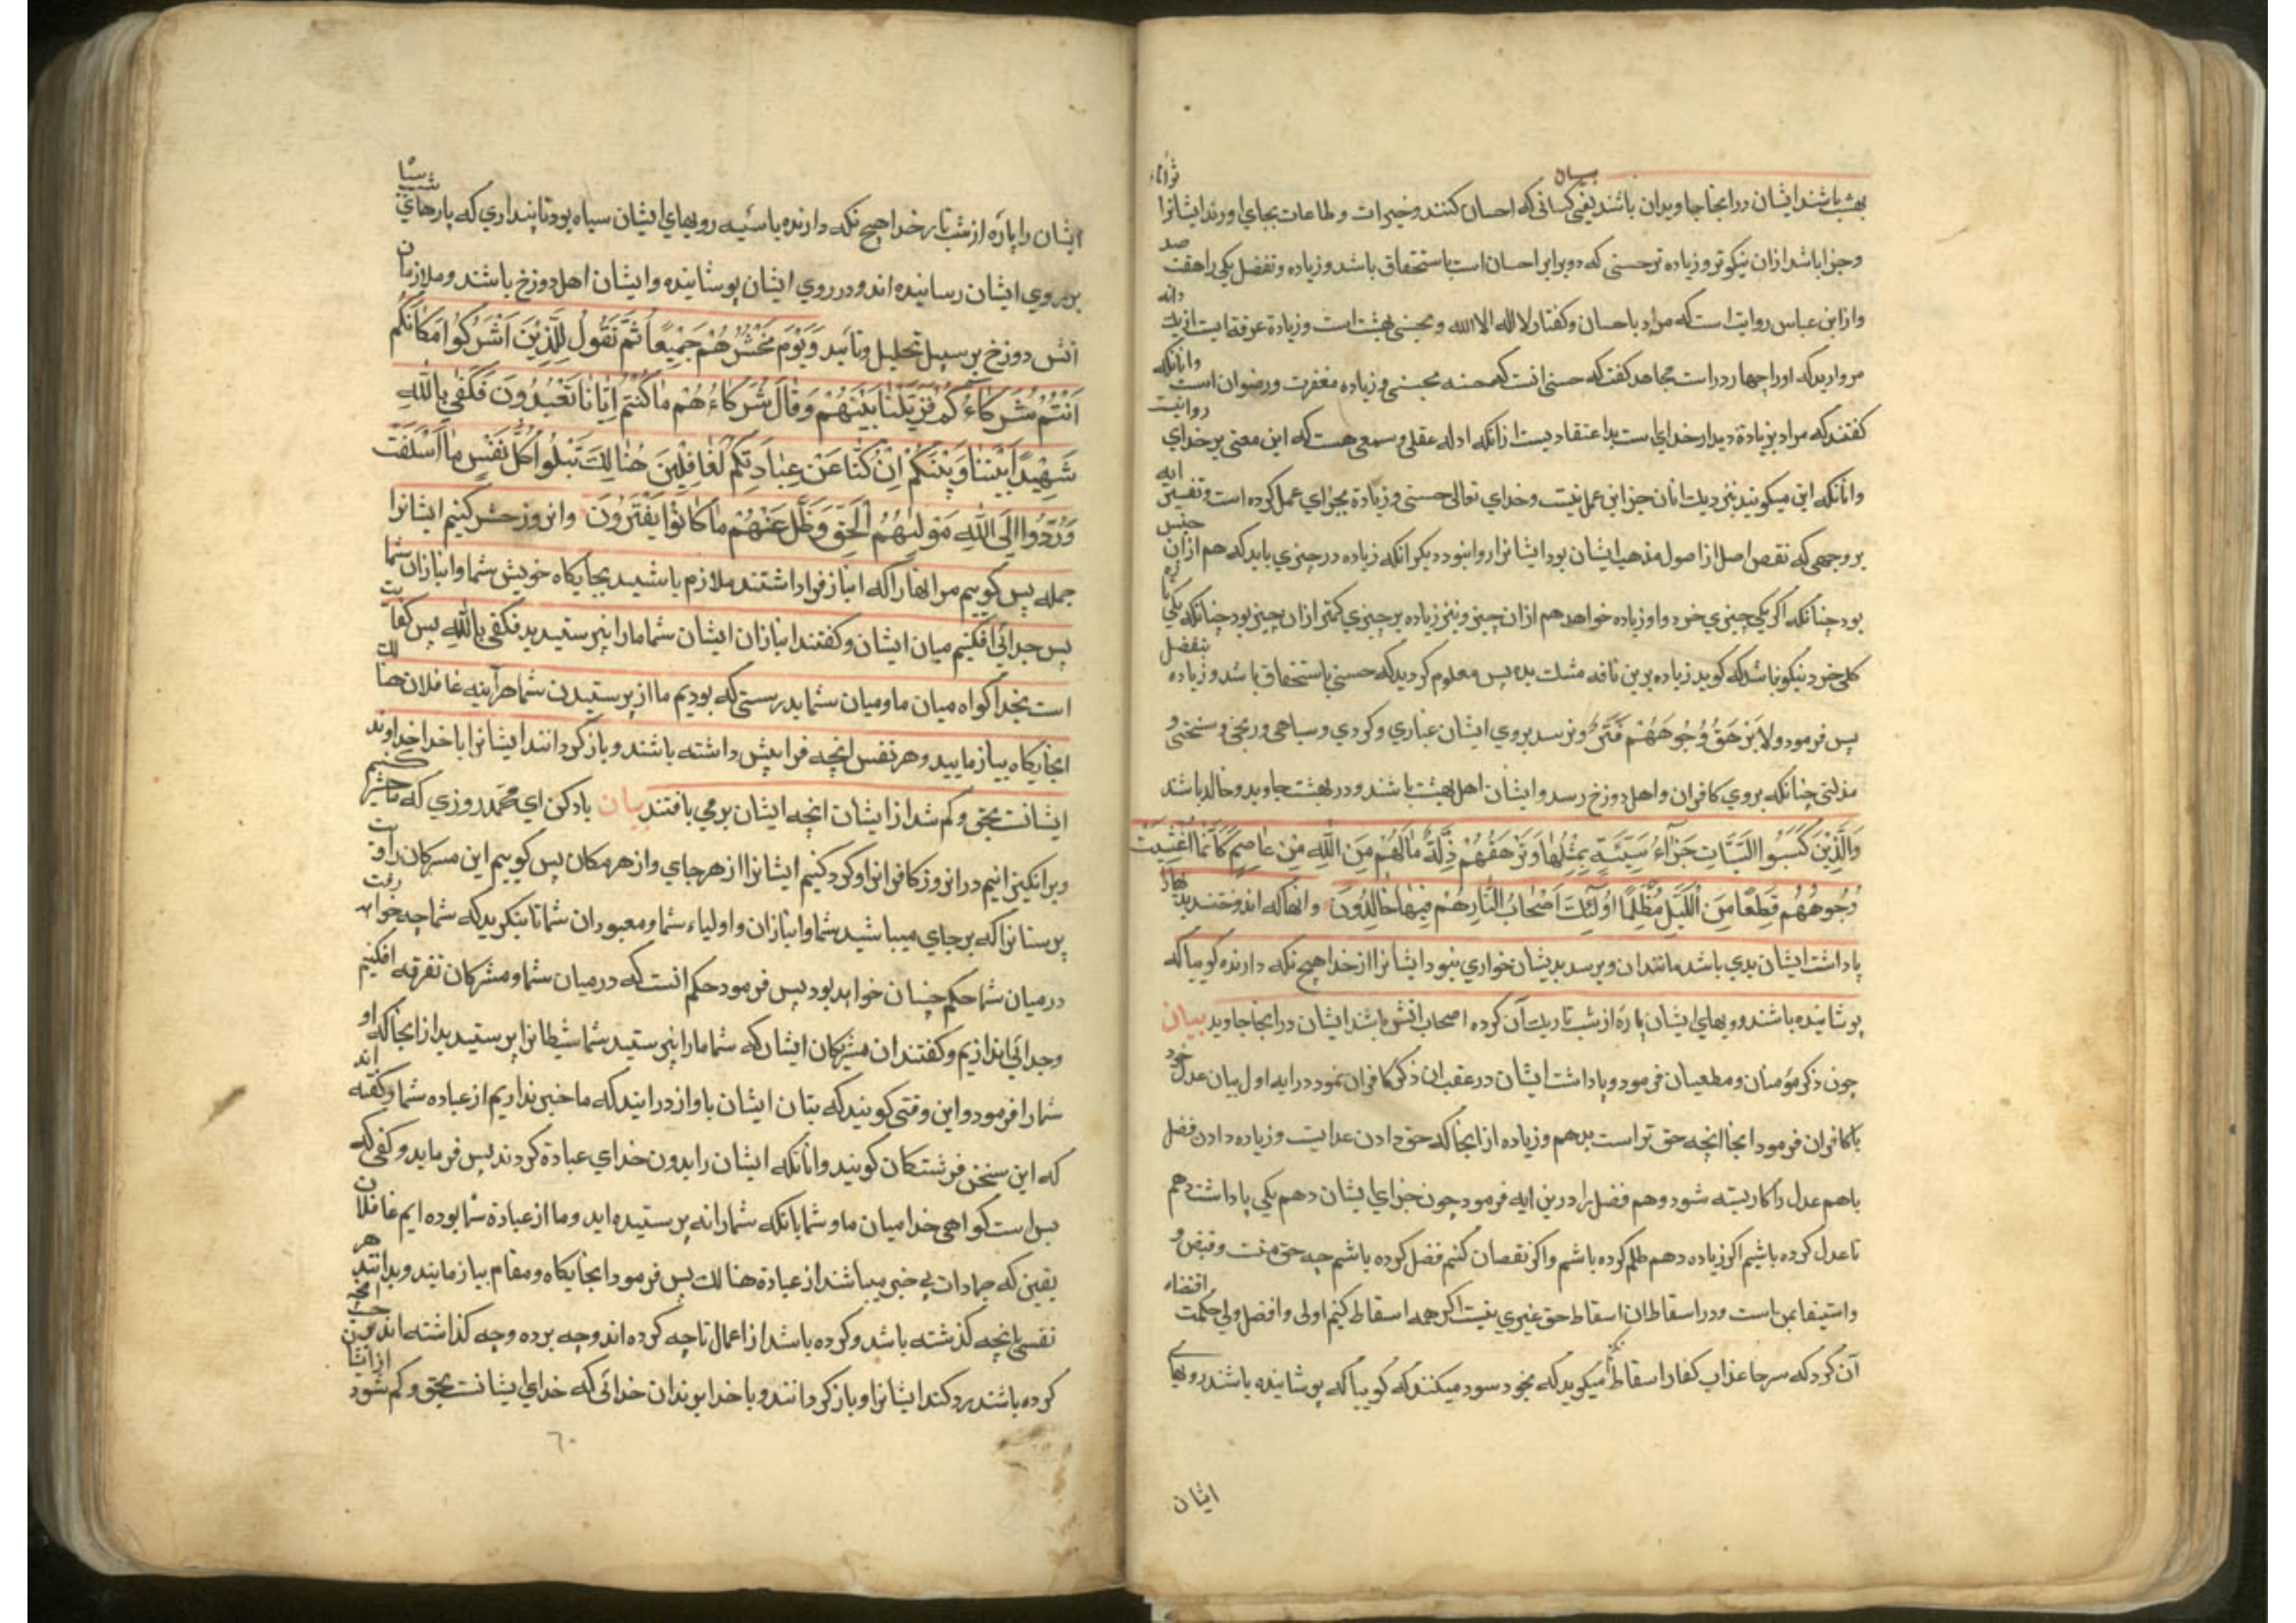 بیان
بهشت باشند ایشان در انجا جاویدان باشند یعنی کسانی که احسان کنند و خیرات و طاعات بجای اورند ایشانرا ثواباء
و جزا باشد ازان نیکوتر و زیاده تر حسنی که در برابر احسان است باستحقاق باشد و زیاده و تفضل یکی راهفت صد
و از ابن عباس روایت است که مراد باحسان و کفتار لا اله الا الله و بحسنی بهشت است و زیادة غرفه ایست از یک دانه
مروارید که او را چهار در است مجاهد کفت که حسنی انست که حسنه بحسنی و زیاده مغفرت و رضوان است و انانکه
کفتند که مراد بزیادة دیدار خدای است بد اعتقادیست از انکه ادله عقلی و سمعی هست که این معنی بر خدای روانیست
و انانکه این میکویند بنزدیک انان جز این عمل نیست و خدای تعالی حسنی و زیادة بجزای عمل کرده است و تفسیر ایه
بر وجهی که نقص اصل از اصول مذهب ایشان بود ایشانرا روا نبود دیکر انکه زیاده در چیزی باید که هم ازان جنس
بود چنانکه اکر یکی چیزی خرد و او زیاده خواهد هم ازان چیز و نیز زیاده بر چیزی کمتر ازان چیز بود چنانکه یکی
کلی خرد نیکو نباشد که کوید زیاده برین نافه مشک بده پس معلوم کردید که حسنی باستحقاق باشد و زیاده بتفضل
پس فرمود ولا یَرْهَقُ وُجُوهَهُمْ قَتَرٌ و نرسد بروی ایشان غباری و کردی و سیاهی و رنجی و سختی و
مذلتی چنانکه بروی کافران و اهل دوزخ رسد و ایشان اهل بهشت باشند و در بهشت جاوید و خالد باشد
وَالَّذِیْنَ کَسَبُوا السَّیِّئَاتِ جَزَآءُ سَیِّئَةٍ بِمِثْلِهَا وَتَرْهَقُهُمْ ذِلَّةٌ مَا لَهُمْ مِنَ اللّٰهِ مِنْ عَاصِمٍ کَاَنَّمَا اُغْشِیَتْ
وُجُوهُهُمْ قِطَعًا مِنَ اللَّیْلِ مُظْلِمًا اُولٰئِكَ اَصْحَابُ النَّارِ هُمْ فِیْهَا خَالِدُوْنَ و انها که اندوختند بدیها
پاداشت ایشان بدی باشد مانند ان و برسد بدیشان خواری نبود ایشانرا از خدا هیچ نکه دارنده کوییا که
پوشانیده باشند رویهای ایشان پاره از شب تاریک آن کرده اصحاب اتش باشند ایشان در انجا جاوید بیان
چون ذکر مؤمنان و مطیعان فرمود و پاداشت ایشان در عقب ان ذکر کافران نمود در ایه اول بیان عدل خود
با کافران فرمود انجا انچه حق تراست بدهم و زیاده از انجا که حق دادن عدایت و زیاده دادن فضل
باهم عدل را کار بسته شود و هم فضل را درین ایه فرمود چون جزای ایشان دهم یکی پاداشت دهم
تا عدل کرده باشیم اکر زیاده دهم ظلم کرده باشم و اکر نقصان کنیم فضل کرده باشم چه حق منت و قبض و
و استیفا بمن است و در اسقاط ان اسقاط حق غیری نیست اکر همه اسقاط کنیم اولی و افضل ولی حکمت اقتضاء
آن کرد که سرجا عذاب کفار اسقاط نکنم میکوید که بخود سود میکنند که کوییا که پوشانیده باشند رویهای
ایشان
ایشان را پاره از شب تار خدا هیچ نکه دارنده یا سیه رویهای ایشان سیاه بود تا پنداری که پارهای شب سیا
بر روی ایشان رسانیده اند و در روی ایشان پوشانیده و ایشان اهل دوزخ باشند و ملازمان
اتش دوزخ بر سبیل تحلیل و تأبید وَیَوْمَ نَحْشُرُهُمْ جَمِیْعًا ثُمَّ نَقُولُ لِلَّذِیْنَ اَشْرَکُوا مَکَانَکُمْ
اَنْتُمْ وَشُرَکَاءُکُمْ فَزَیَّلْنَا بَیْنَهُمْ وَقَالَ شُرَکَاءُهُمْ مَا کُنْتُمْ اِیَّانَا تَعْبُدُونَ فَکَفٰی بِاللّٰهِ
شَهِیْدًا بَیْنَنَا وَبَیْنَکُمْ اِنْ کُنَّا عَنْ عِبَادَتِکُمْ لَغَافِلِیْنَ هُنَالِكَ تَبْلُوا کُلُّ نَفْسٍ مَا اَسْلَفَتْ
وَرُدُّوا اِلَی اللّٰهِ مَوْلٰیهُمُ الْحَقِّ وَضَلَّ عَنْهُمْ مَا کَانُوا یَفْتَرُوْنَ و انروز حشر کنیم ایشانرا
جمله پس کوییم مر انها را که انباز فرا داشتند ملازم باشید بجایکاه خویش شما و انبازان شما
پس جدائی افکنیم میان ایشان و کفتند انبازان ایشان شما مارا نپرستیدید فکفی بالله پس کفایت
است بخدا کواه میان ما و میان شما بدرستی که بودیم ما از پرستیدن شما هرآینه غافلان هنالك
انجایکاه بیازمایید و هر نفس انچه فرا پیش داشته باشند و باز کردانند ایشانرا با خدا خداوند
ایشانست بحق و کم شد از ایشان انچه ایشان برمی بافتند بیان یاد کن ای محمد روزی که ما حشر کنیم
و برانکیزانیم در انروز کافرانرا و کرد کنیم ایشانرا از هر جای و از هر مکان پس کوییم این مشرکان را و بت
پرستانرا که بر جای میباشید شما و انبازان و اولیاء شما و معبودان شما تا بنکرید که شما چه خواهد رفت
در میان شما حکم چسان خواهد بود پس فرمود حکم انست که در میان شما و مشرکان تفرقه افکنیم
و جدائی اندازیم و کفتند ان مشرکان ایشان که شما مارا نپرستید شما شیطانرا پرستیدید از انجا که او
شما را فرمود و این وقتی کویند که بتان ایشان باواز درایند که ما خبر نداریم از عباده شما و کفته اند
که این سخن فرشتکان کویند و انانکه ایشان را بدون خدای عبادة کردند پس فرماید و کفی که
بس است کواهی خدا میان ما و شما بانکه شما را نه پرستیده اید و ما از عبادة شما بوده ایم غافلان
یقین که جمادات بی خبر میباشند از عبادة هنالك پس فرمود انجایکاه و مقام بیازمایند و بدانند هر
نفسی انچه کذشته باشد و کرده باشد از اعمال تا چه کرده اند و چه برده و چه کذاشته اند
کرده باشند رد کنند ایشانرا و باز کردانند و با خدا برند ان خدائی که خدای ایشانست بحق و کم شود از ایشا
٦٠